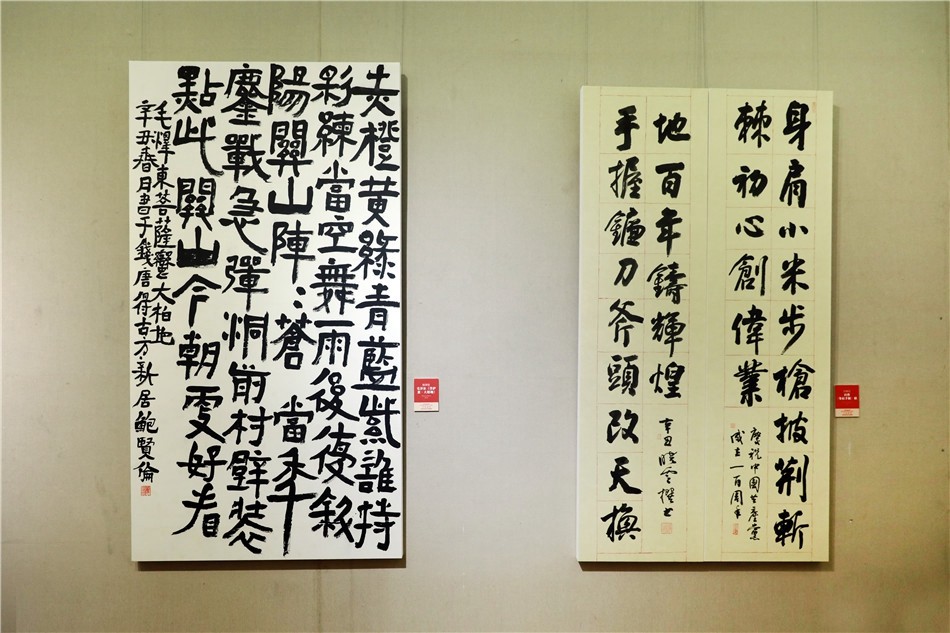 赤橙黄綠青藍紫誰持
彩練當空舞雨後復斜
陽關山陣〻蒼 當年
鏖戰急彈洞前村壁裝
點此關山今朝更好看
毛澤東菩薩蠻大柏地
辛丑春日書于錢唐得古方新居鮑賢倫
身肩小米步槍披荆斬
棘初心創偉業
慶祝中國共產黨
成立一百周年
手握鐮刀斧頭改天換
地百年鑄輝煌
辛丑